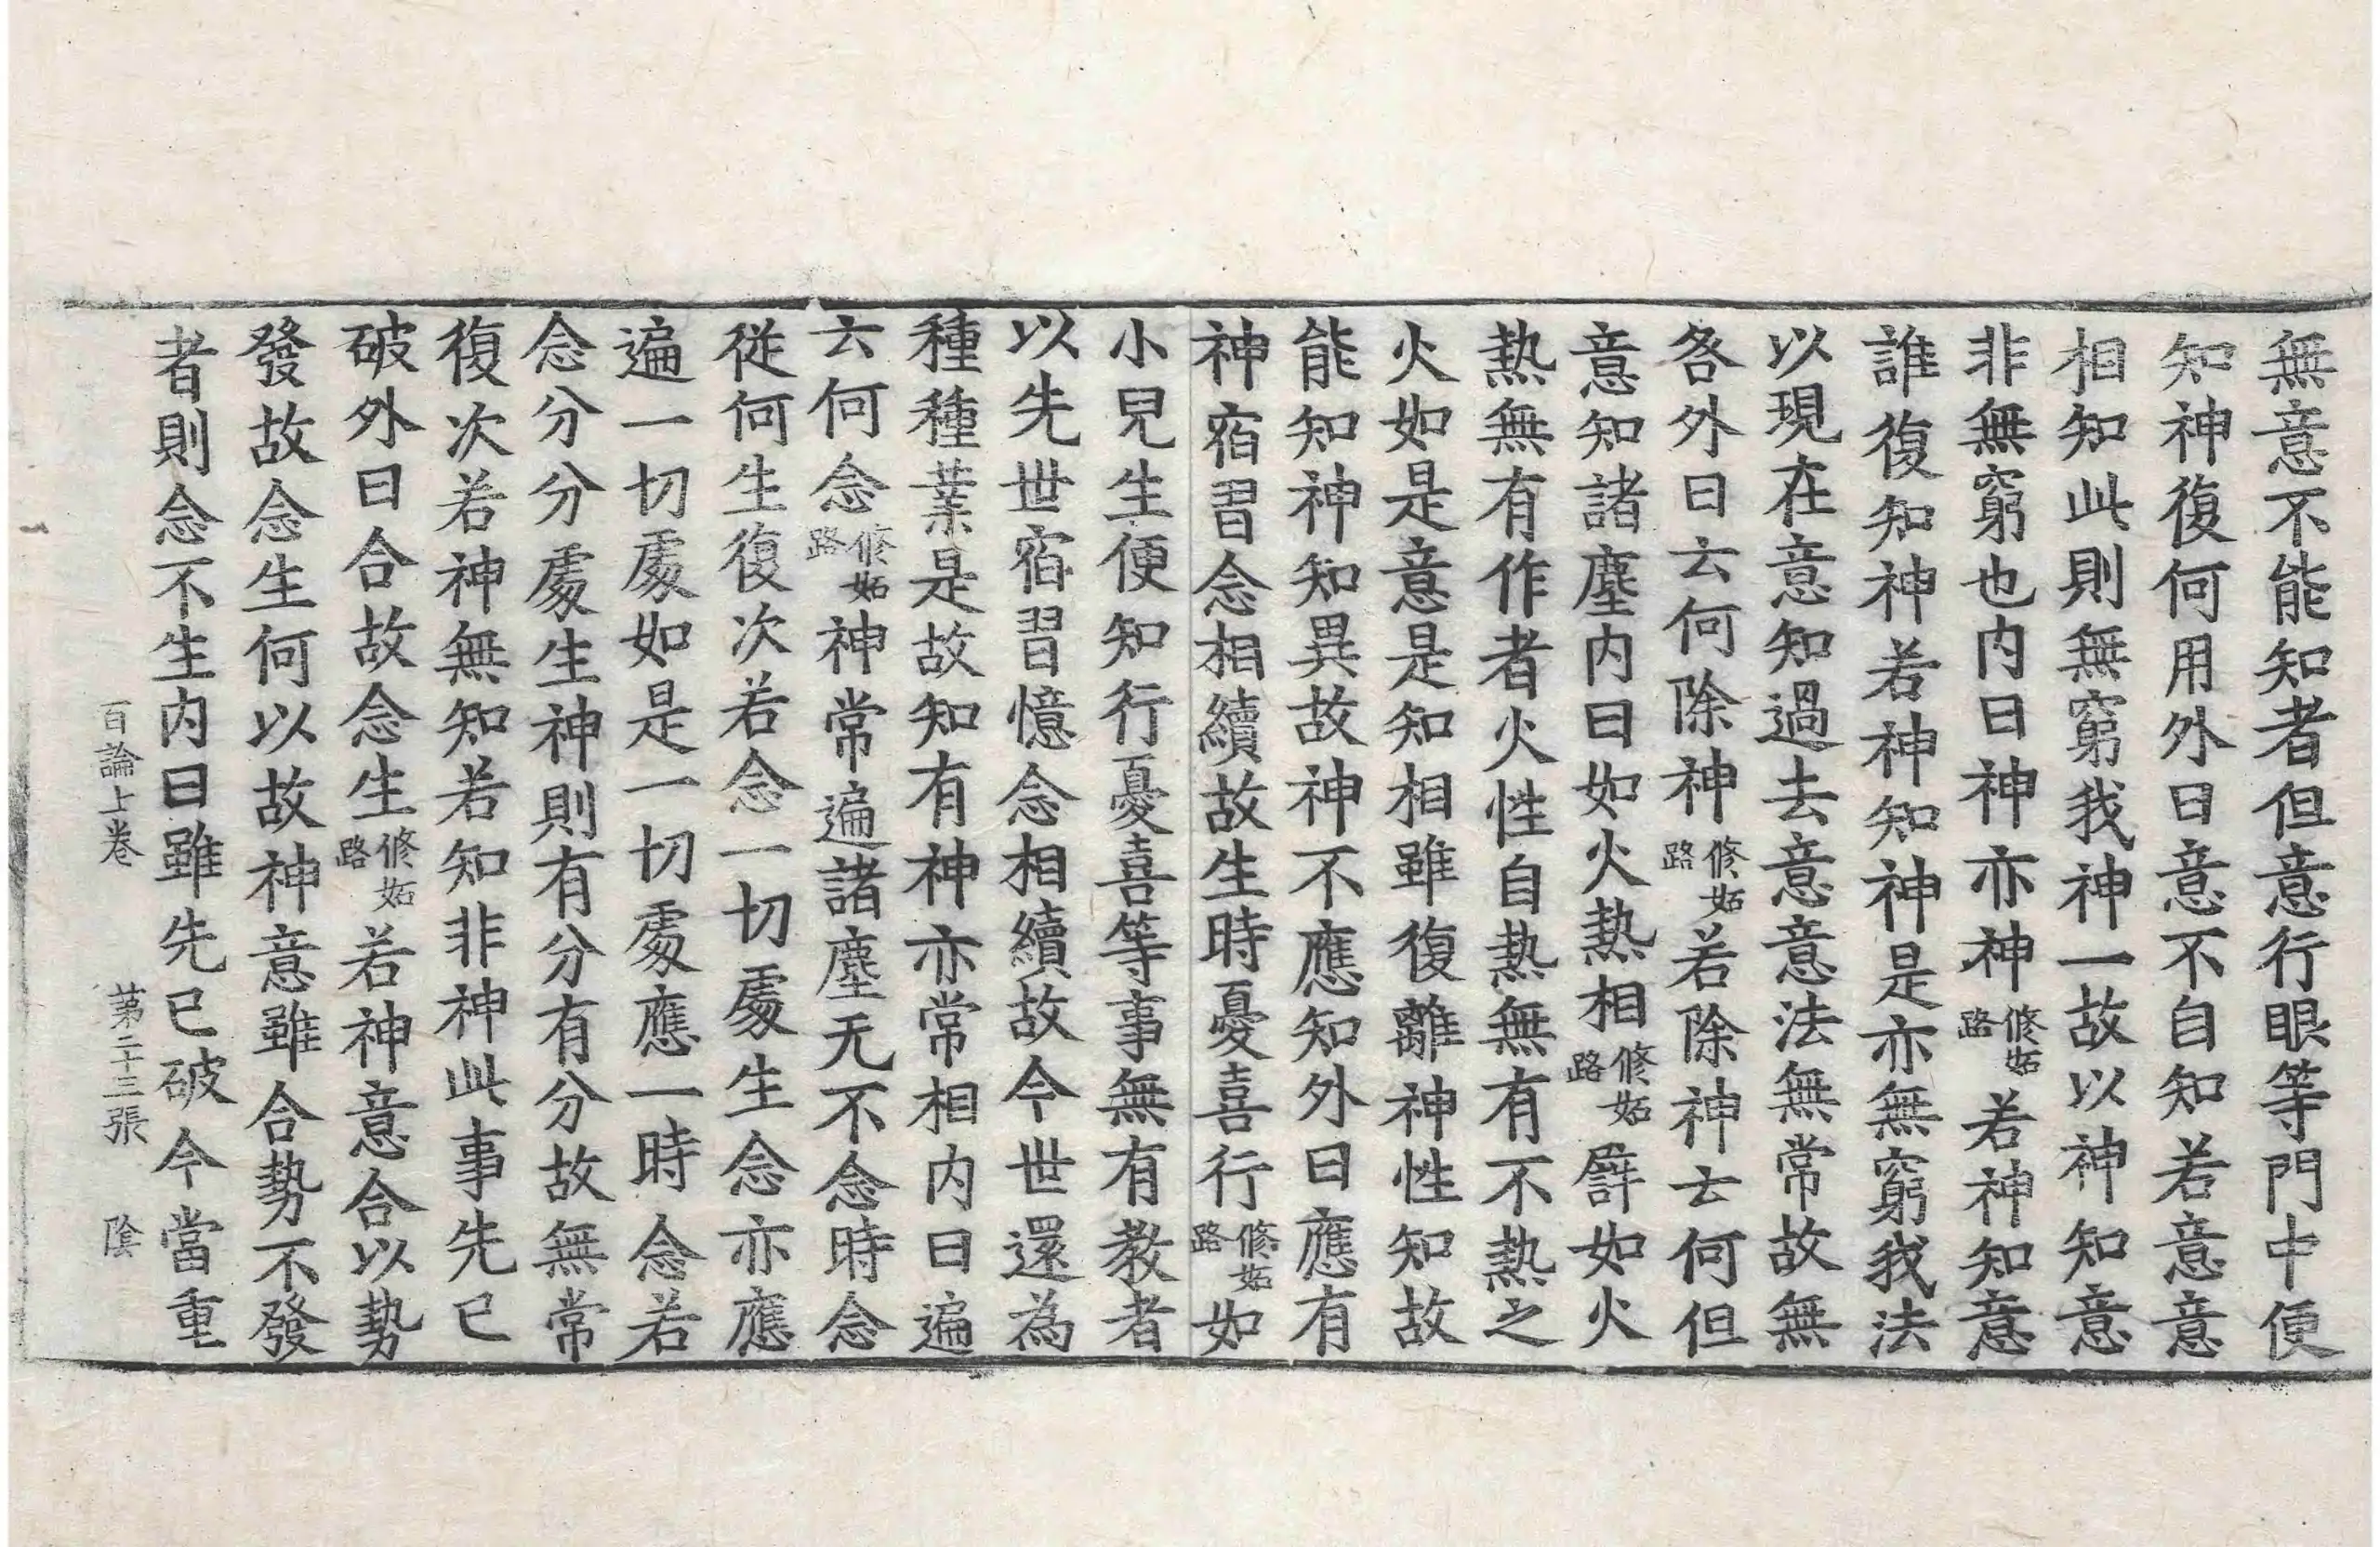 無意不能知者但意行眼等門中便
知神復何用外曰意不自知若意意
相知此則無窮我神一故以神知意
非無窮也内曰神亦神修妬路若神知意
誰復知神若神知神是亦無窮我法
以現在意知過去意意法無常故無
咎外曰云何除神修妬路若除神云何但
意知諸塵内曰如火熱相修妬路譬如火
熱無有作者火性自熱無有不熱之
火如是意是知相雖復離神性知故
能知神知異故神不應知外曰應有
神宿習念相續故生時憂喜行修妬路如
小兒生便知行憂喜等事無有教者
以先世宿習憶念相續故今世還為
種種業是故知有神亦常相内曰遍
云何念修妬路神常遍諸塵无不念時念
從何生復次若念一切處生念亦應
遍一切處如是一切處應一時念若
念分分處生神則有分有分故無常
復次若神無知若知非神此事先已
破外曰合故念生修妬路若神意合以勢
發故念生何以故神意雖合勢不發
者則念不生内曰雖先已破今當重
百論上卷　第二十三張　陰